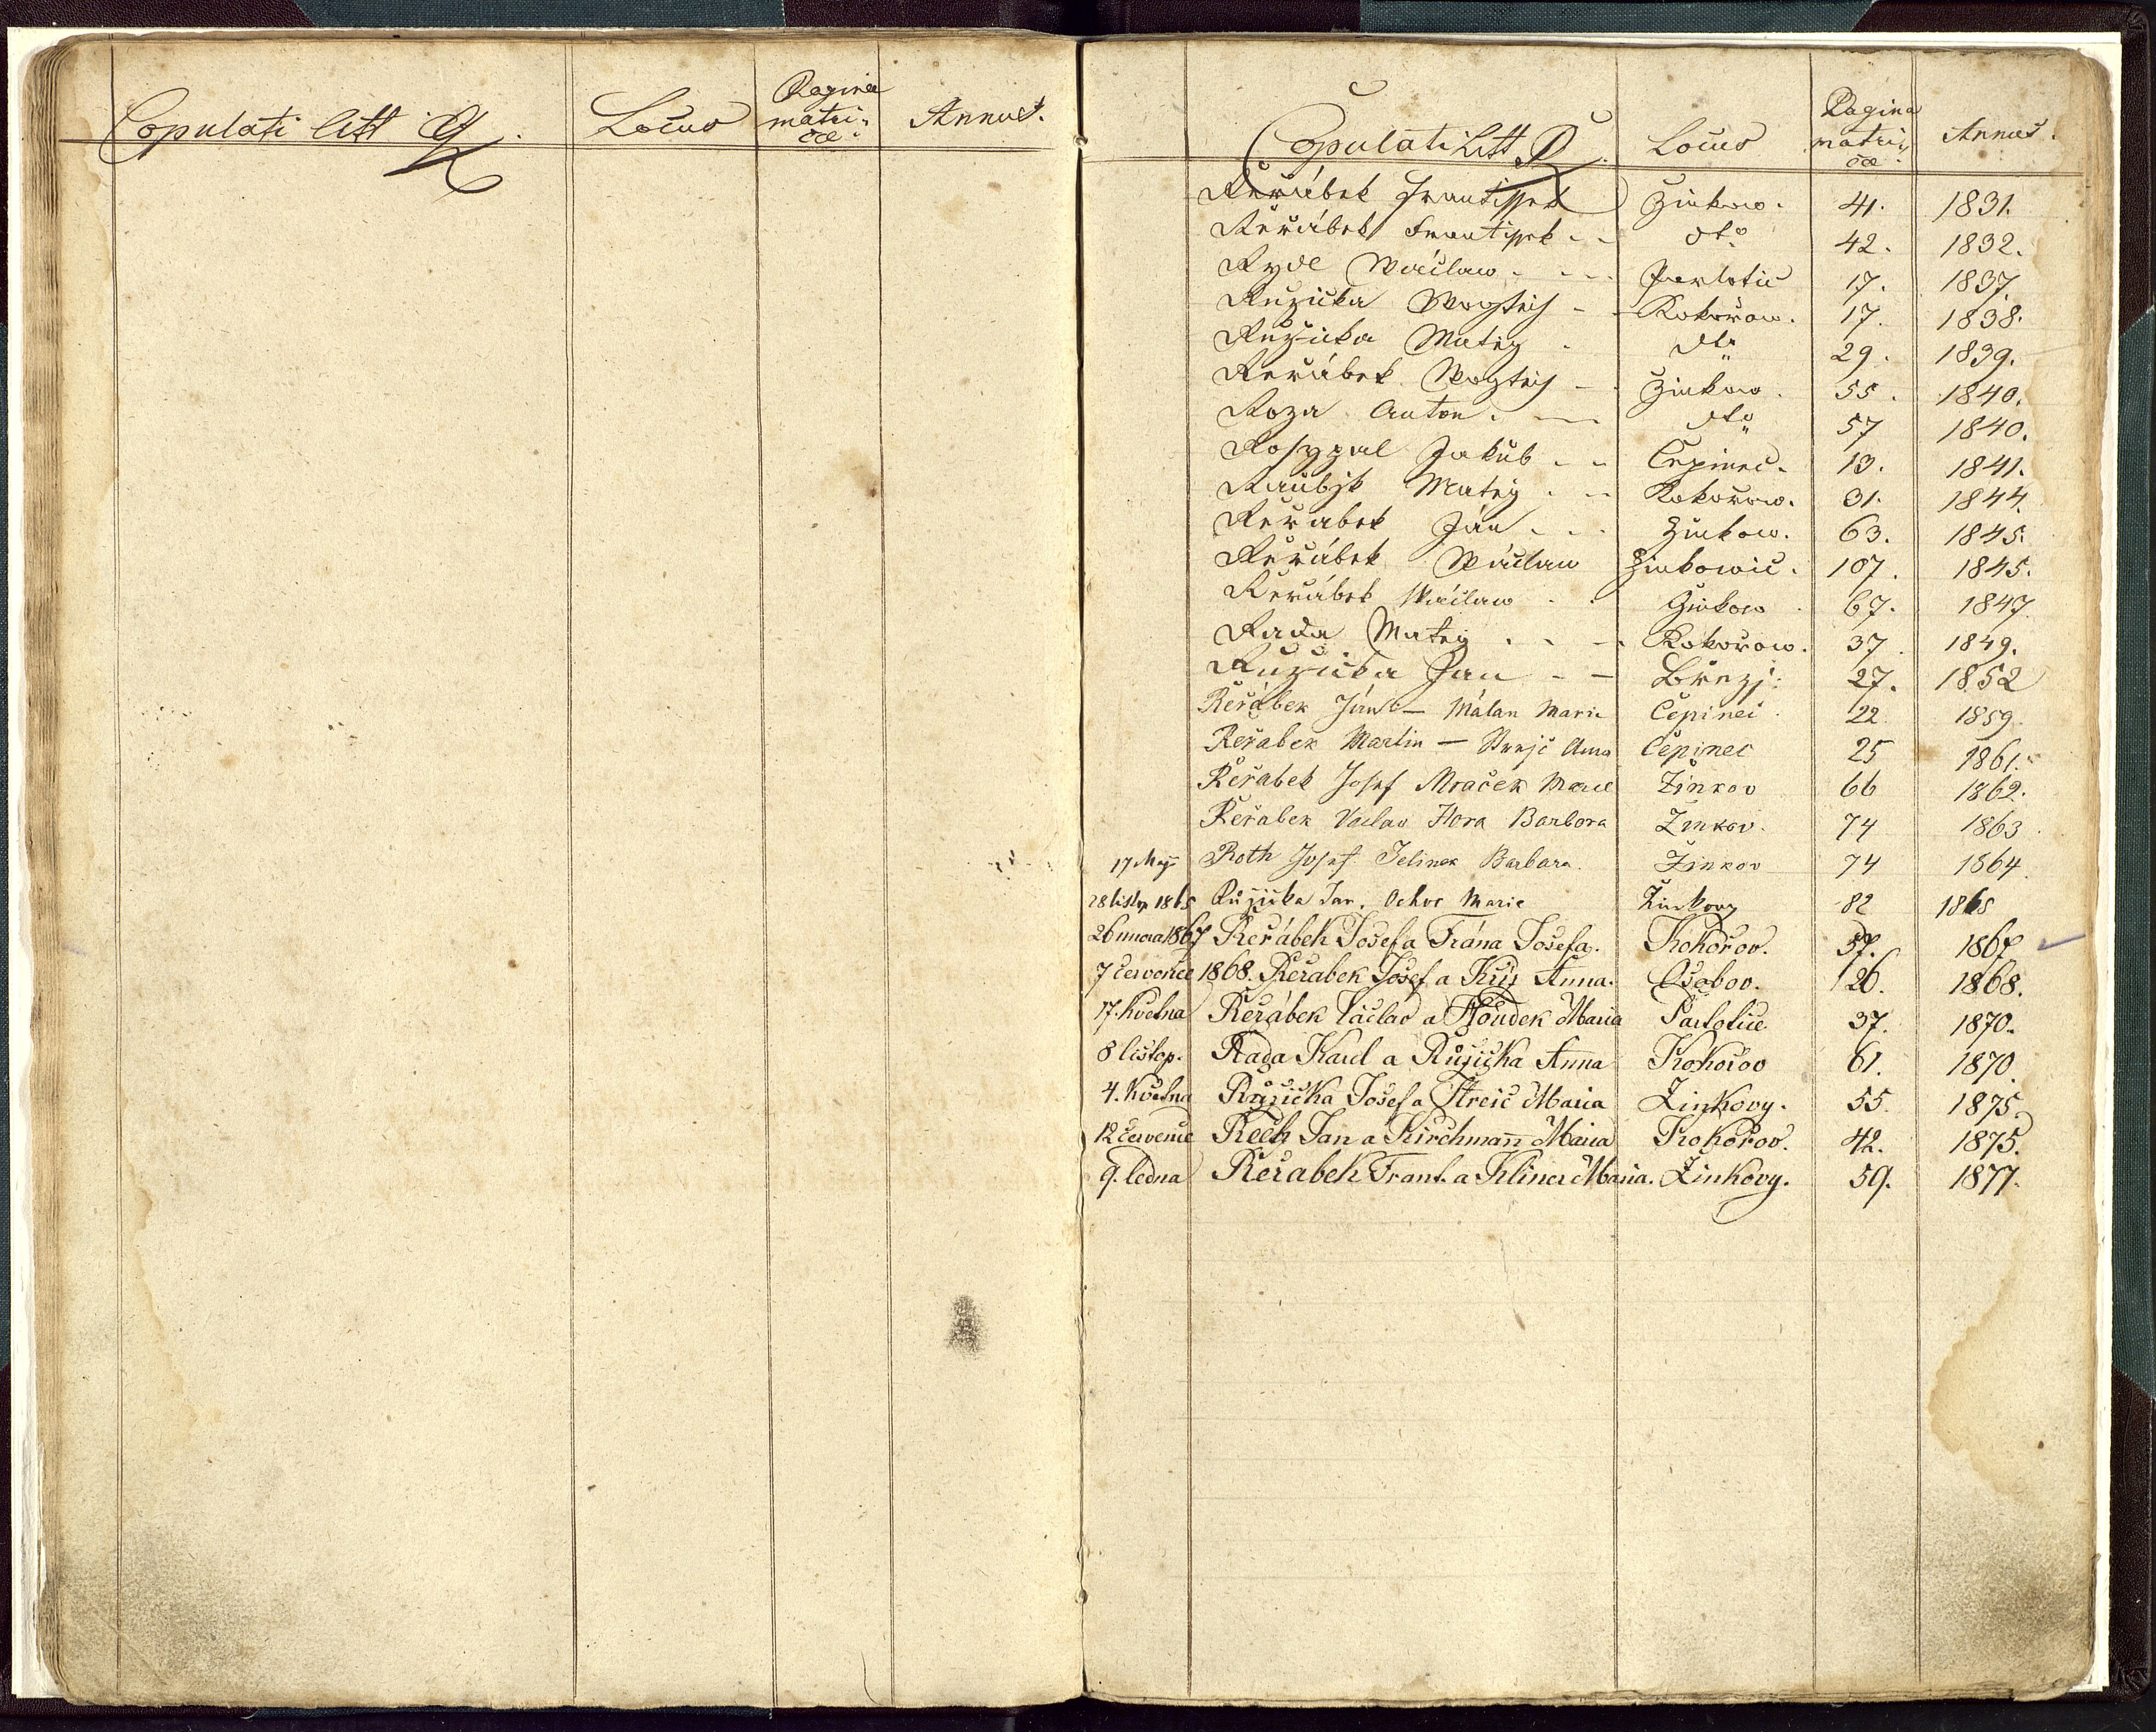 Copulati litt Q. Locus Pagina matricæ. Annus.
Copulati Litt R. Locus Pagina matricæ. Annus.
Reřábek Frantissek Zinkow. 41. 1831.
Reřábek Frantissek - - dto 42. 1832.
Rydl Wáclaw - - - Partotic 17. 1837.
Ružička Wogtěch - - Kokořow. 17. 1838.
Ružička Matěg - dto 29. 1839.
Reřábek Wogtěch - Zinkow. 55. 1840.
Roza Anton. - dto 57 1840.
Rosypal Jakub - - Čepinec. 13. 1841.
Raubjk Matěg - - Kokořow. 31. 1844.
Reřabek Ján - - Zinkow. 63. 1845.
Reřábek Wáclaw Zinkowic. 107. 1845.
Reřábek Wáclaw - - Zinkow 67. 1847.
Rada Matěg - - - Kokořow. 37. 1849.
Ružička Jan - - Březj: 27. 1852
Reřábek Ján - Málan Marie Čepineč 22 1859.
Reřabek Martin - Anna Čepinec 25 1861.
Reřabek Josef Mraček Marie Žinkov 66 1862.
Reřabek Vaclav Hora Barbora Žinkov. 74 1863
17 Maj Roth Josef Jelinek Barbara. Žinkov 74 1864.
28 listop 1865 Růžička Jan. Marie Žinkovy 82 1865
26 února 1867 Reřábek Josef a Frána Josefa. Kokořov. 37. 1867
7 července 1868. Reřabek Josef a Anna. Osobov. 26. 1868.
17. května Reřábek Václav a Houdek Maria Partotice. 37. 1870.
8 listop. Rada Karel a Růžička Anna Kokořov 61. 1870.
4. května Růžička Josef a Streic Maria Žinkovy. 55. 1875.
12 července Rech Jan a Kirchmann Maria Kokořov. 42. 1875.
9. ledna Reřabek Frant. a Kliner Maria. Žinkovy. 59. 1877.